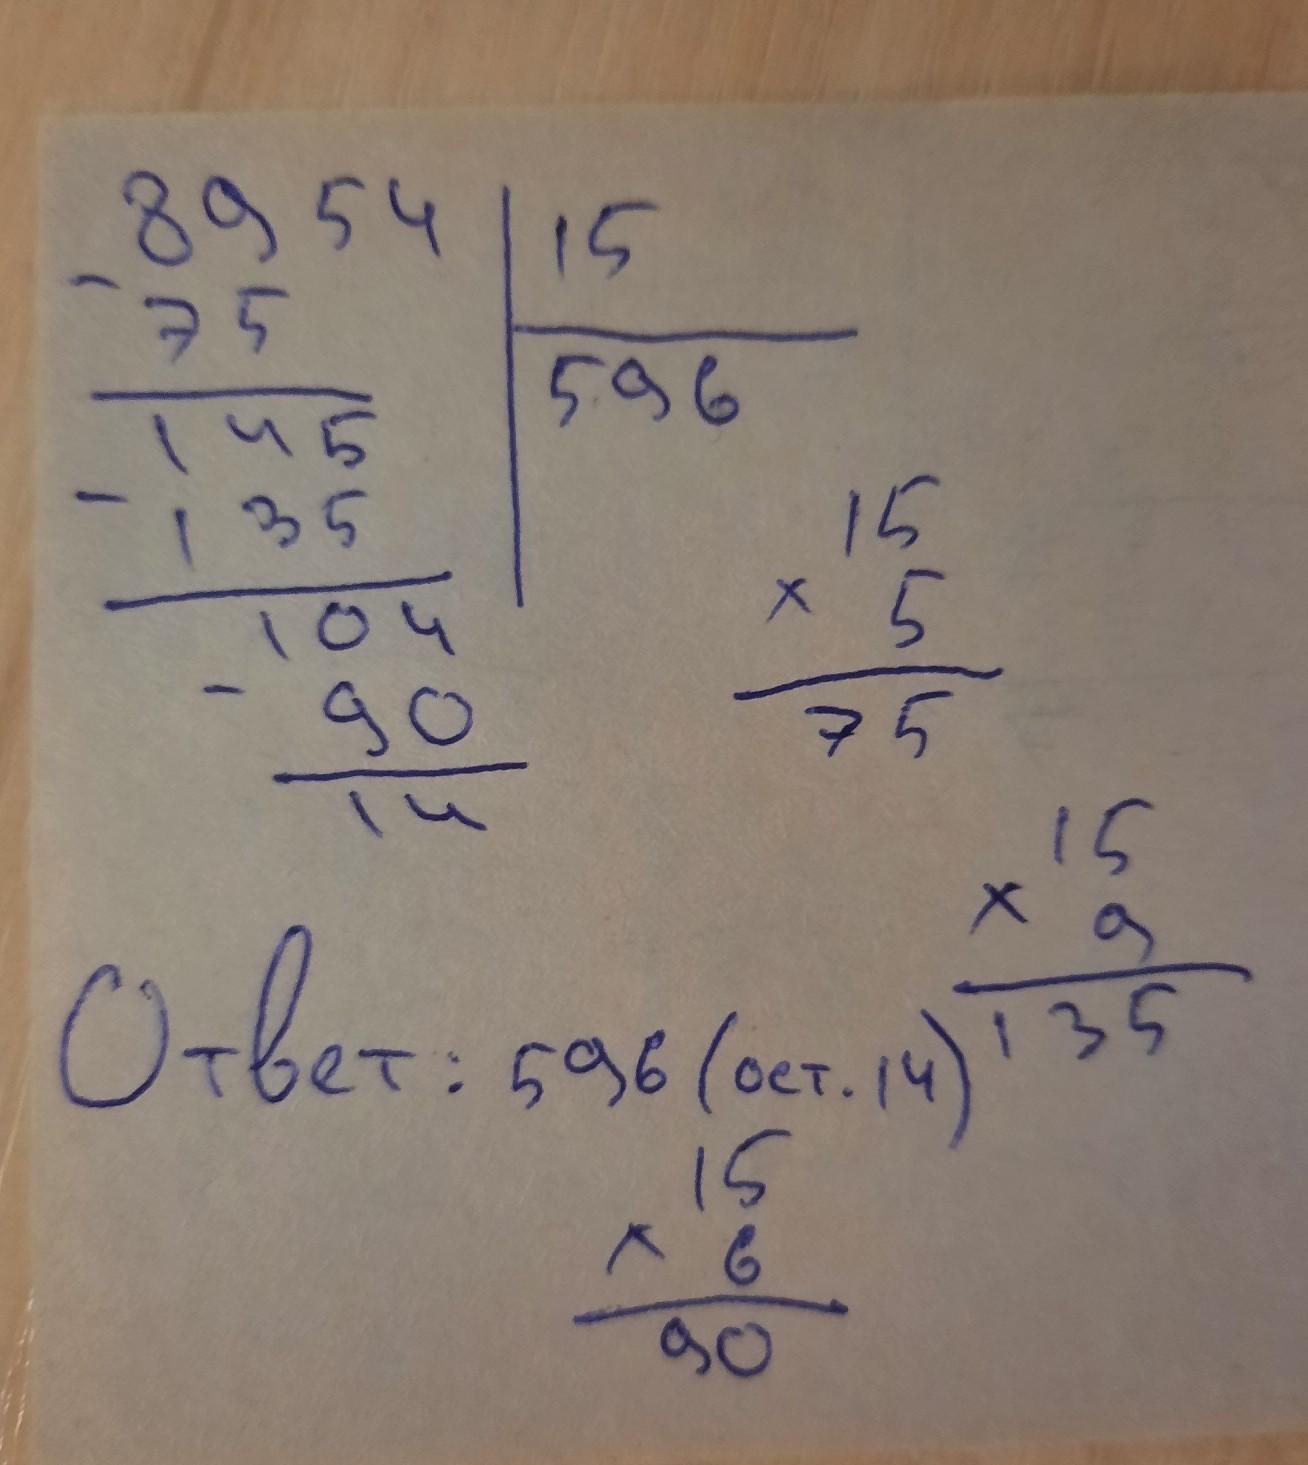 8954 | 15
- 75
596
145
- 135
104
- 90
14
15
× 5
75
15
× 9
135
Ответ: 596 (ост. 14)
15
× 6
90